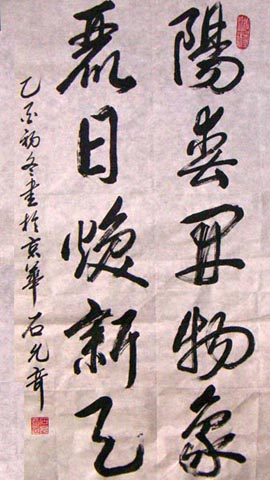 陽春開物象
麗日煥新天
乙酉初冬書於京華 石